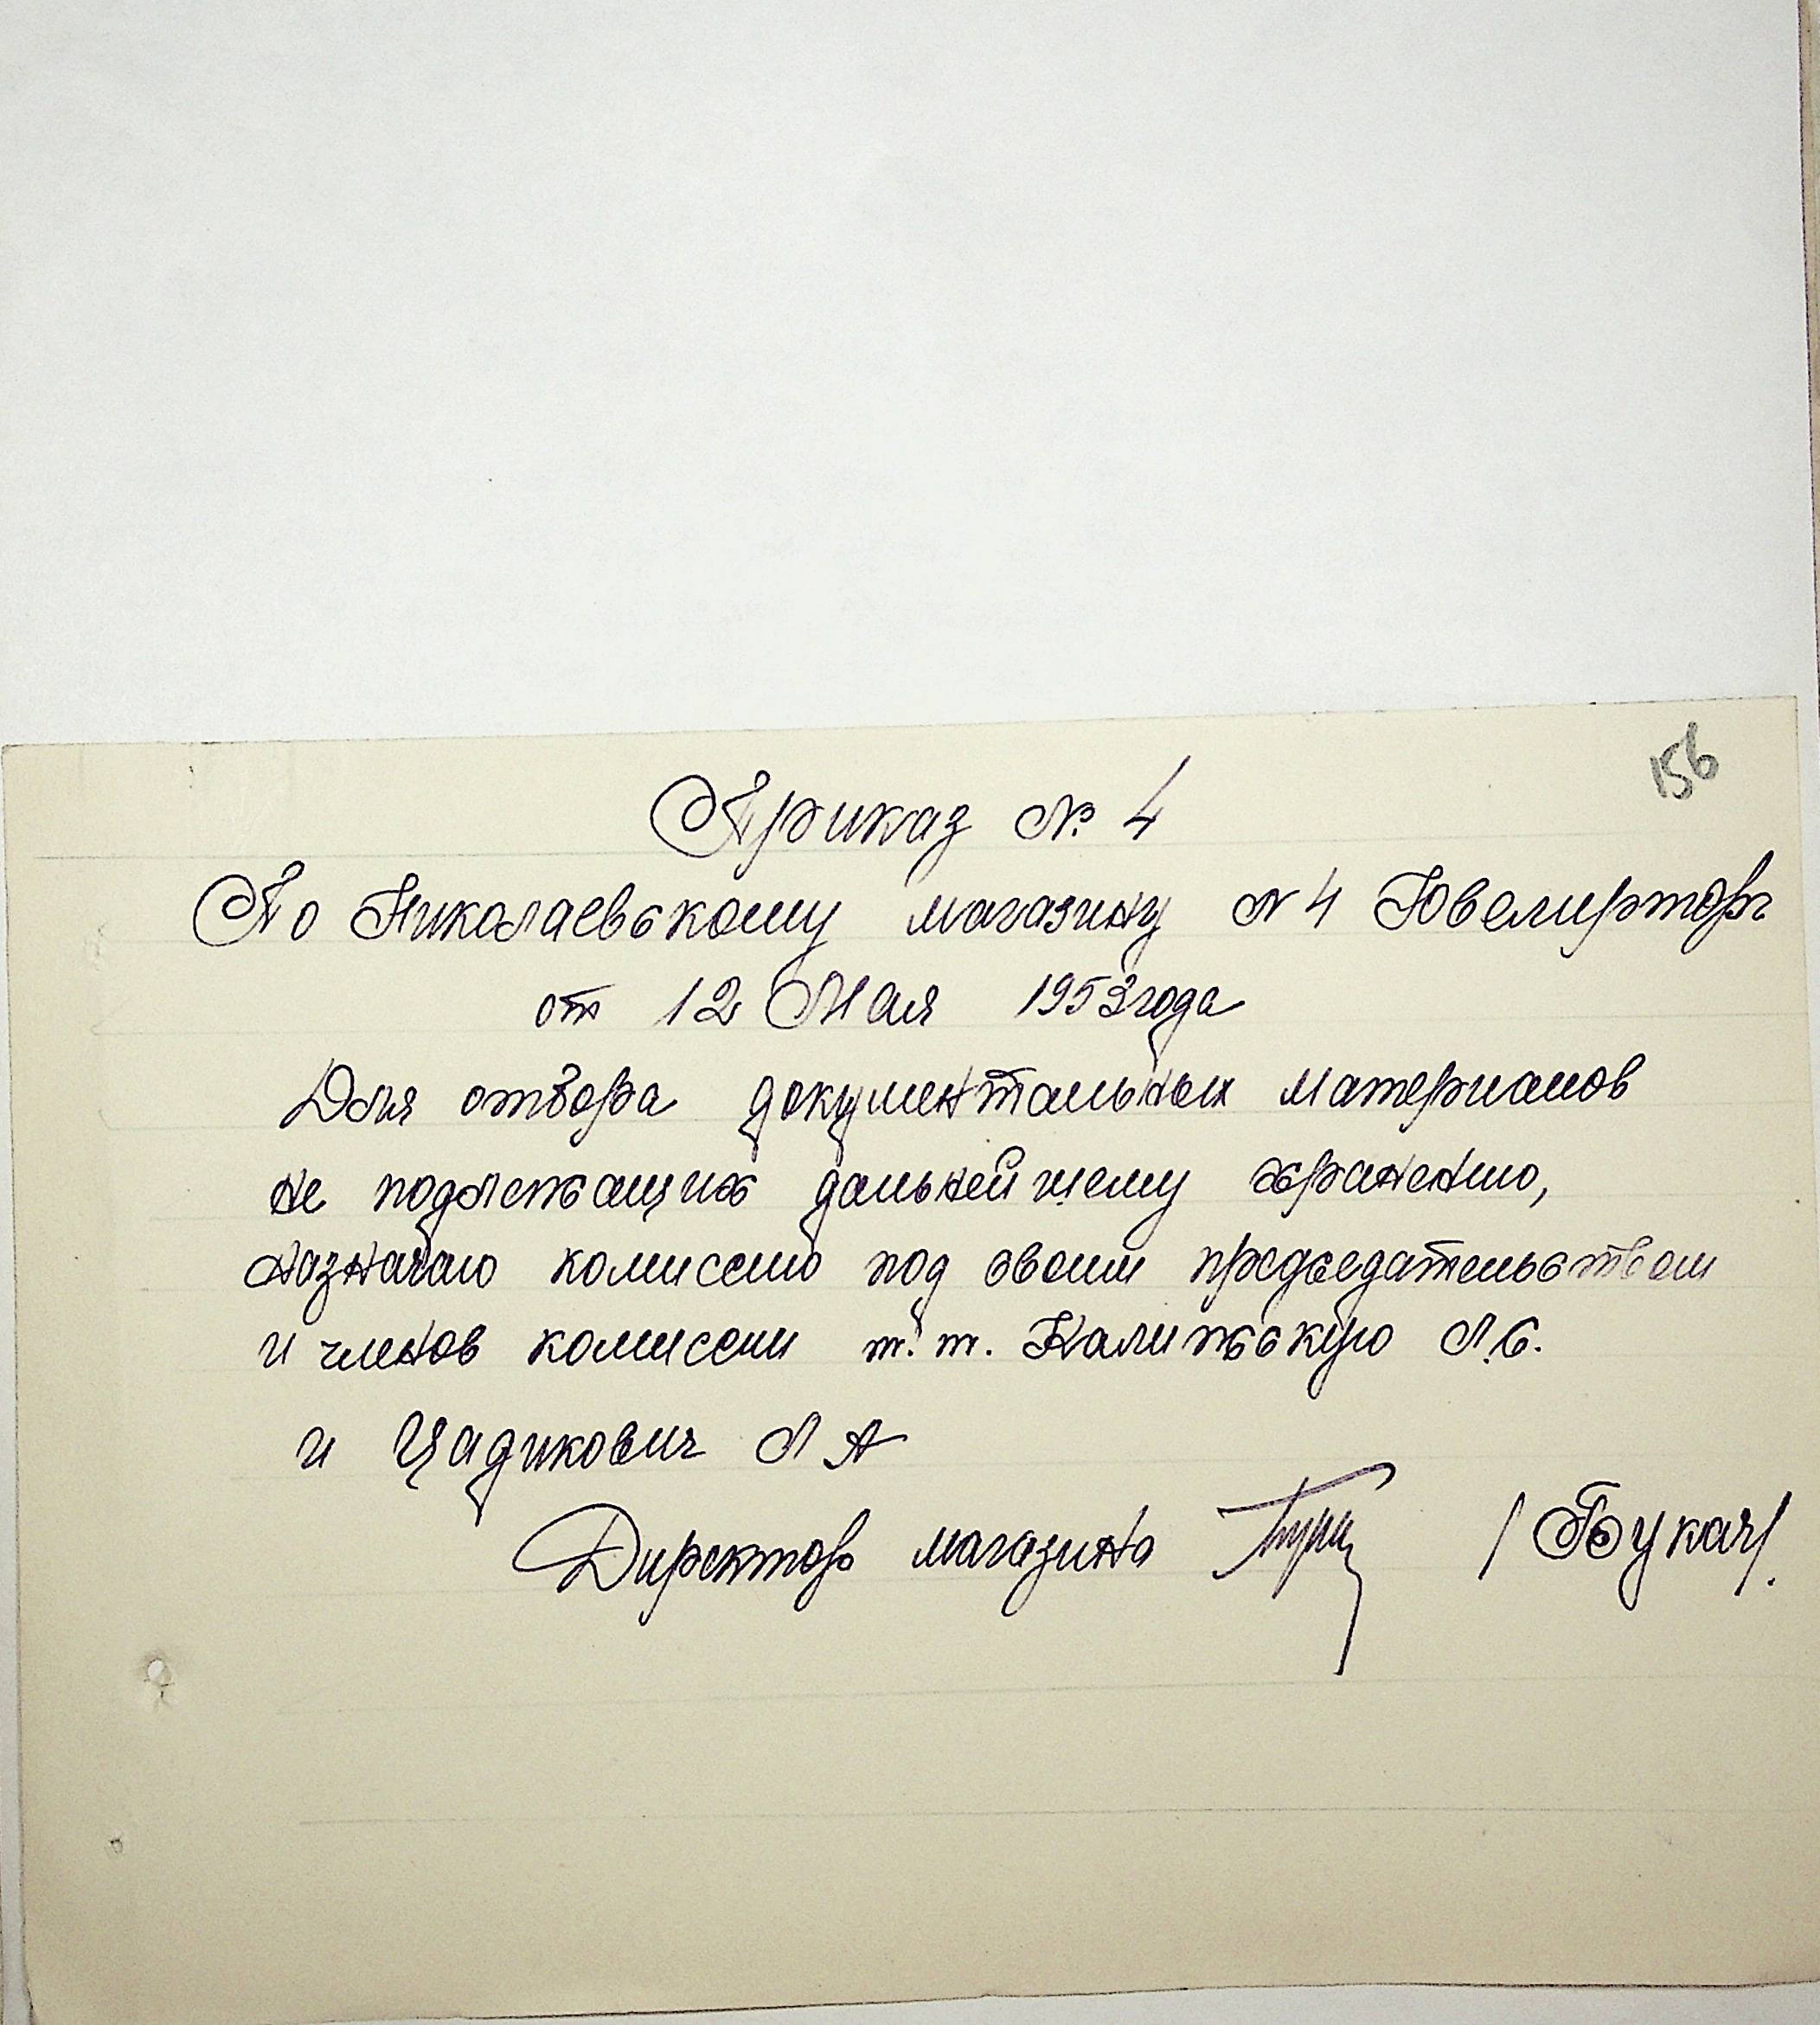 156
Приказ № 4
По Николаевскому магазину № 4 Ювелирторг
от 12 Мая 1953 года
Для отбора документальных материалов
не подлежащих дальнейшему хранению,
назначаю комиссию под своим председательством
и членов комиссии т.т. Калитвскую Л.С.
и Цадикович Л А
Директор магазина / Букач/.